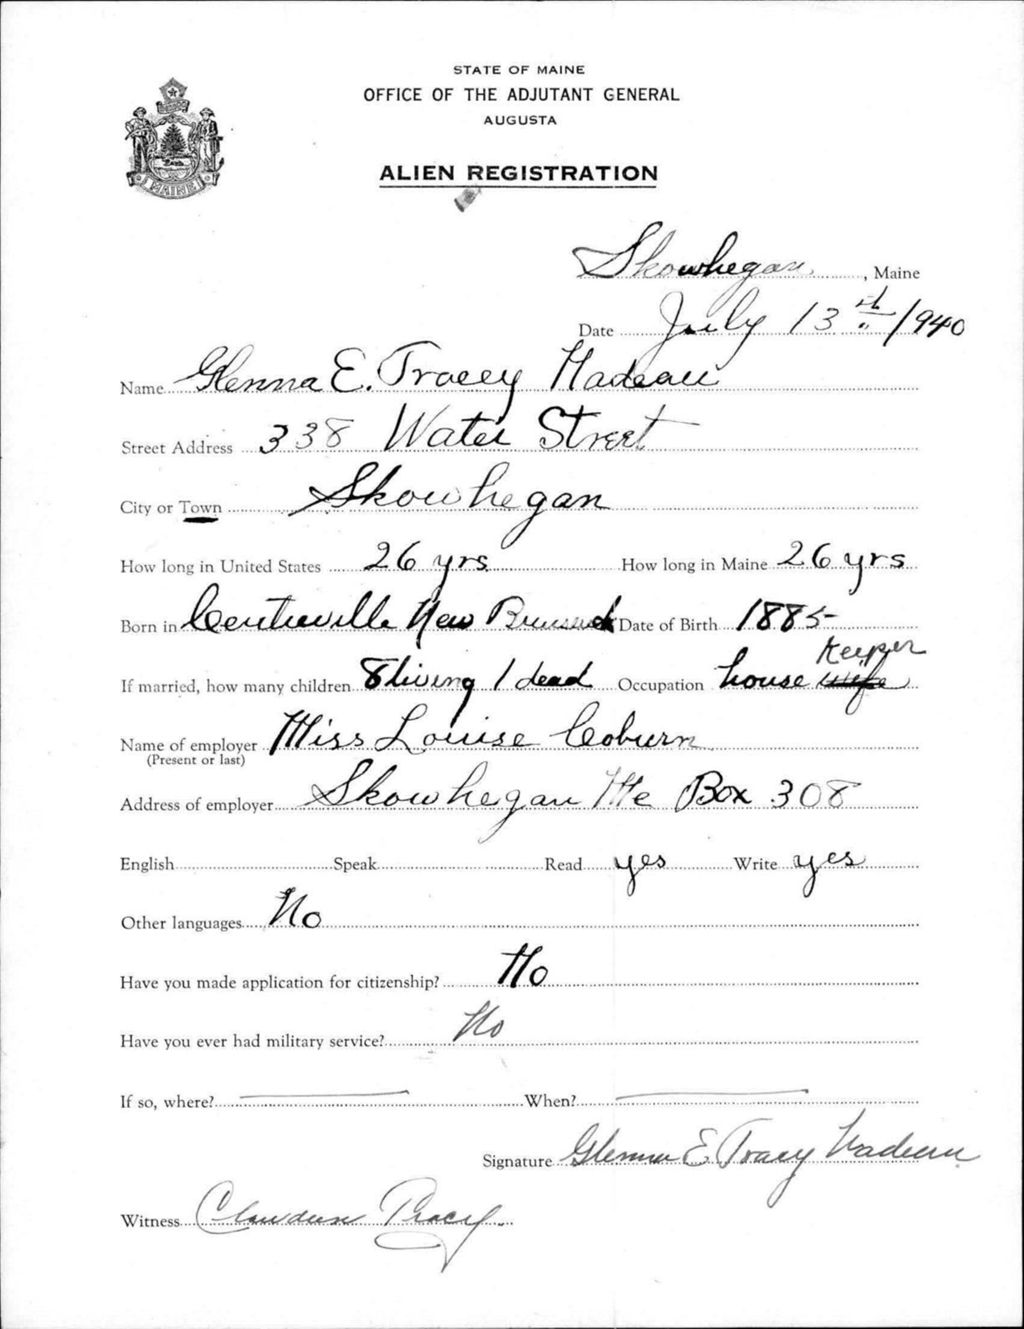 STATE OF MAINE
OFFICE OF THE ADJUTANT GENERAL
AUGUSTA
ALIEN REGISTRATION
MAINE
Skowhegan, Maine
Date July 13th 1940
Name Glenna E. Tracey Nadeau
Street Address 338 Water Street
City or Town Skowhegan
How long in United States 26 yrs How long in Maine 26 yrs
Born in Centreville New Brunswick Date of Birth 1885
If married, how many children 8 living 1 dead Occupation house wife Keeper
Name of employer Miss Louise Coburn
(Present or last)
Address of employer Skowhegan Me Box 308
English Speak Read yes Write yes
Other languages No
Have you made application for citizenship? No
Have you ever had military service? No
If so, where? When?
Signature Glenna E Tracy Nadeau
Witness Tracy